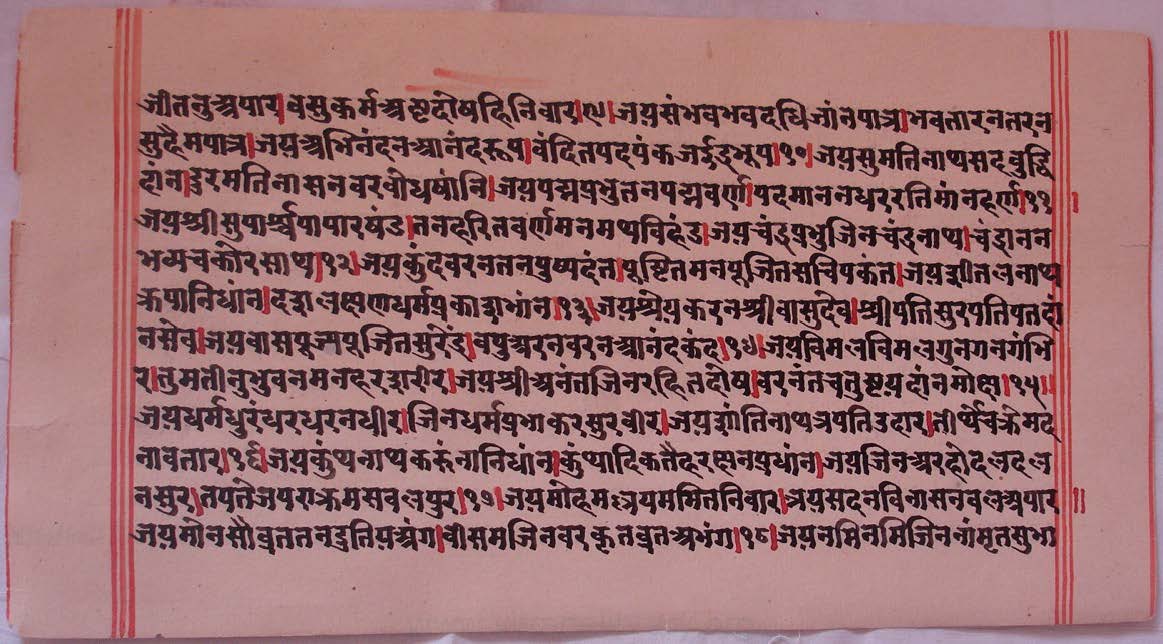 जीतनुअपार।वसुकर्मअष्टदोषहिनिवार।९।जयसंभवभवदधिजांनपात्र।भवतारनतरन
सुहैमपात्र।जयअभिनंदनआनंदरूप।वंदितपदपंकज र्इदुभूप।१०।जयसुमतिनाथसदबुद्धि
दांन।दुरमतिनासनवरवोधषांनि।जयपद्मप्रभुतनपद्मवर्ण।पदमाननधररतिमांनहर्ण।११।
जयश्रीसुपार्श्वपापारषंड।तनहरितवर्णमनमथविहंड।जयचंद्रप्रभुजिनचंदनाथ।चंद्रानन
भव्यचकोरसाथ।१२।जयकुंदवरनतनपुष्पदंत।पुष्टितमनपूजितसचिपकंत।जयशीतलनाथ
क्रपानिधांन।दशलक्षणधर्मप्रकाशभांन।१३।जयश्रेयकरनश्रीवासुदेव।श्रीपतिसुरपतिपतहां
नसेव।जयवासपूज्यपूजितसुरेंद्र।वपुअरनवरनआनंदकंद।१४।जयविमलविमलगुनगनगंभि
र।तुमतीनुभुवनमनहरशरीर।जयश्रीअनंतजिनरहितदोष।वरनंतचतुष्टयदांनमोक्ष।१५॥
जयधर्मधुरंधरधरनधीर।जिनधर्मप्रभाकरसुरवीर।जयशांतिनाथत्रपतिउदार।तीर्थेचक्रेमद
नावतार।१६।जयकुंथनाथककरुंनानिधांन।कुंथादिकतैहरक्षनप्रधांन।जयजिनअरहोदलदल
नसुर।तपतेजपराक्रमसवलपुर।१७।जयमोहमल्लयममितनिवार।त्रयसदनविनासनवलअपार॥
जयमोनसौव्रततनद्रुतियअंग।वीसमजिनवरकृतव्रतअभंग।१८।जयनमिनमिजिननांमृतसुभा